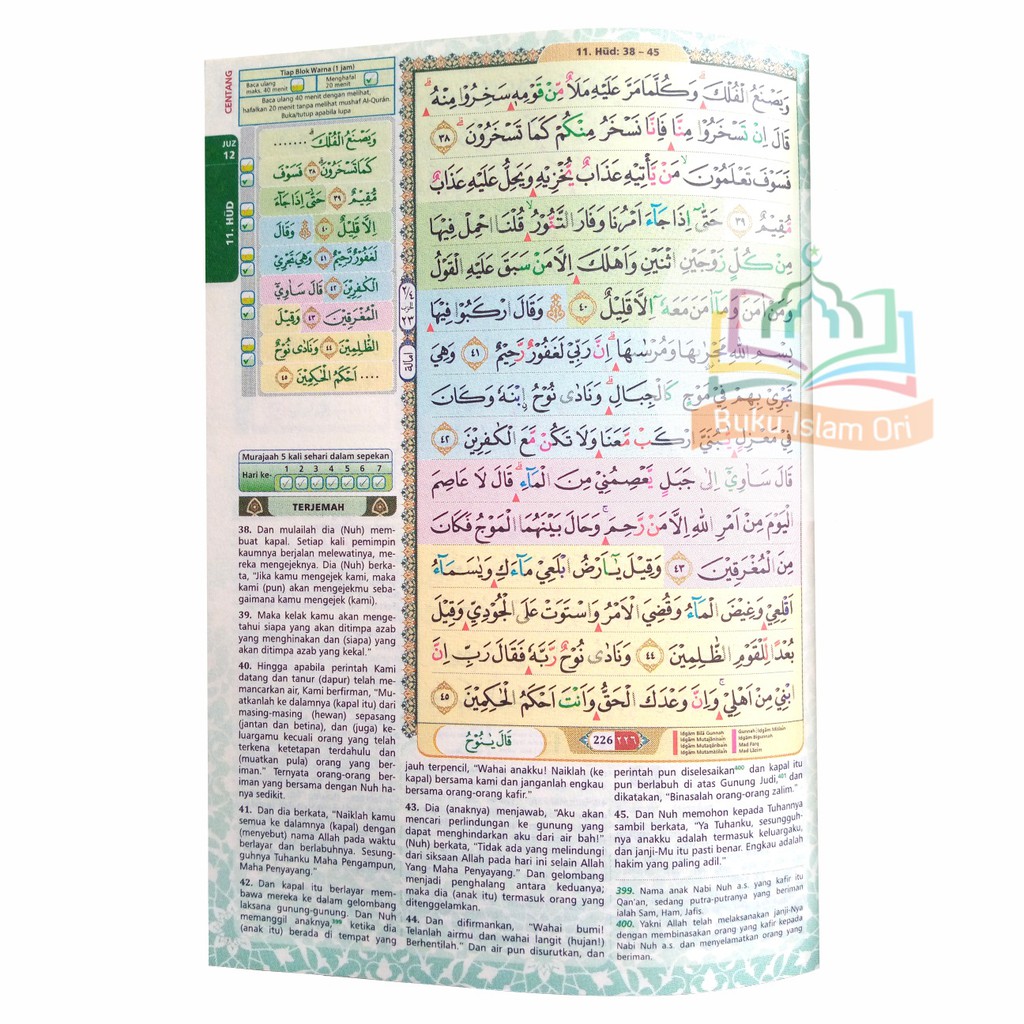 11. Hūd: 38 – 45
CENTANG
Tiap Blok Warna (1 jam)
Baca ulang
maks. 40 menit
Menghafal
20 menit
Baca ulang 40 menit dengan melihat,
hafalkan 20 menit tanpa melihat mushaf Al-Qurán.
Buka/tutup apabila lupa
JUZ
12
11. HŪD
وَيَصْنَعُ الْفُلْكَ ۗ .......
كَمَا تَسْخَرُوْنَ ٣٨ فَسَوْفَ
مُّقِيْمٌ ٣٩ حَتّٰىٓ اِذَا جَاۤءَ
اِلَّا قَلِيْلٌ ٤٠ ۞ وَقَالَ
لَغَفُوْرٌ رَّحِيْمٌ ٤١ وَهِيَ تَجْرِيْ
الْكٰفِرِيْنَ ٤٢ قَالَ سَاٰوِيْٓ
الْمُغْرَقِيْنَ ٤٣ وَقِيْلَ
الظّٰلِمِيْنَ ٤٤ وَنَادٰى نُوْحٌ
.... اَحْكَمُ الْحٰكِمِيْنَ ٤٥
وَيَصْنَعُ الْفُلْكَۗ وَكُلَّمَا مَرَّ عَلَيْهِ مَلَاٌ مِّنْ قَوْمِهٖ سَخِرُوْا مِنْهُۗ
قَالَ اِنْ تَسْخَرُوْا مِنَّا فَاِنَّا نَسْخَرُ مِنْكُمْ كَمَا تَسْخَرُوْنَۗ ٣٨
فَسَوْفَ تَعْلَمُوْنَۙ مَنْ يَّأْتِيْهِ عَذَابٌ يُّخْزِيْهِ وَيَحِلُّ عَلَيْهِ عَذَابٌ
مُّقِيْمٌ ٣٩ حَتّٰىٓ اِذَا جَاۤءَ اَمْرُنَا وَفَارَ التَّنُّوْرُۙ قُلْنَا احْمِلْ فِيْهَا
مِنْ كُلٍّ زَوْجَيْنِ اثْنَيْنِ وَاَهْلَكَ اِلَّا مَنْ سَبَقَ عَلَيْهِ الْقَوْلُ
وَمَنْ اٰمَنَ ۗوَمَآ اٰمَنَ مَعَهٗٓ اِلَّا قَلِيْلٌ ٤٠ ۞ وَقَالَ ارْكَبُوْا فِيْهَا
بِسْمِ اللّٰهِ مَجْرٰ۪ىهَا وَمُرْسٰىهَا ۗاِنَّ رَبِّيْ لَغَفُوْرٌ رَّحِيْمٌ ٤١ وَهِيَ
تَجْرِيْ بِهِمْ فِيْ مَوْجٍ كَالْجِبَالِۗ وَنَادٰى نُوْحُ ۨابْنَهٗ وَكَانَ
فِيْ مَعْزِلٍ يّٰبُنَيَّ ارْكَبْ مَّعَنَا وَلَا تَكُنْ مَّعَ الْكٰفِرِيْنَ ٤٢
قَالَ سَاٰوِيْٓ اِلٰى جَبَلٍ يَّعْصِمُنِيْ مِنَ الْمَاۤءِ ۗقَالَ لَا عَاصِمَ
الْيَوْمَ مِنْ اَمْرِ اللّٰهِ اِلَّا مَنْ رَّحِمَ ۚوَحَالَ بَيْنَهُمَا الْمَوْجُ فَكَانَ
مِنَ الْمُغْرَقِيْنَ ٤٣ وَقِيْلَ يٰٓاَرْضُ ابْلَعِيْ مَاۤءَكِ وَيٰسَمَاۤءُ
اَقْلِعِيْ وَغِيْضَ الْمَاۤءُ وَقُضِيَ الْاَمْرُ وَاسْتَوَتْ عَلَى الْجُوْدِيِّ وَقِيْلَ
بُعْدًا لِّلْقَوْمِ الظّٰلِمِيْنَ ٤٤ وَنَادٰى نُوْحٌ رَّبَّهٗ فَقَالَ رَبِّ اِنَّ
ابْنِيْ مِنْ اَهْلِيْۚ وَاِنَّ وَعْدَكَ الْحَقُّ وَاَنْتَ اَحْكَمُ الْحٰكِمِيْنَ ٤٥
امالة
قَالَ يٰنُوْحُ
226 ٢٢٦
Idgām Bilā Gunnah
Idgām Mutajānisain
Idgām Mutaqāribain
Idgām Mutamāṡilain
Mad Farq
Mad Lāzim
Murajaah 5 kali sehari dalam sepekan
Hari ke- 1 2 3 4 5 6 7
TERJEMAH
38. Dan mulailah dia (Nuh) mem-
buat kapal. Setiap kali pemimpin
kaumnya berjalan melewatinya, me-
reka mengejeknya. Dia (Nuh) berka-
ta, "Jika kamu mengejek kami, maka
kami (pun) akan mengejekmu seba-
gaimana kamu mengejek (kami).
39. Maka kelak kamu akan menge-
tahui siapa yang akan ditimpa azab
yang menghinakan dan (siapa) yang
akan ditimpa azab yang kekal."
40. Hingga apabila perintah Kami
datang dan tanur (dapur) telah me-
mancarkan air, Kami berfirman, "Mu-
atkanlah ke dalamnya (kapal itu) dari
masing-masing (hewan) sepasang
(jantan dan betina), dan (juga) ke-
luargamu kecuali orang yang telah
terkena ketetapan terdahulu dan
(muatkan pula) orang yang ber-
iman." Ternyata orang-orang ber-
iman yang bersama dengan Nuh ha-
nya sedikit.
41. Dan dia berkata, "Naiklah kamu
semua ke dalamnya (kapal) dengan
(menyebut) nama Allah pada waktu
berlayar dan berlabuhnya. Sesung-
guhnya Tuhanku Maha Pengampun,
Maha Penyayang."
42. Dan kapal itu berlayar mem-
bawa mereka ke dalam gelombang
laksana gunung-gunung. Dan Nuh
memanggil anaknya,³⁹⁹ ketika dia
(anak itu) berada di tempat yang
jauh terpencil, "Wahai anakku! Naiklah (ke
kapal) bersama kami dan janganlah engkau
bersama orang-orang kafir."
43. Dia (anaknya) menjawab, "Aku akan
mencari perlindungan ke gunung yang
dapat menghindarkan aku dari air bah!"
(Nuh) berkata, "Tidak ada yang melindungi
dari siksaan Allah pada hari ini selain Allah
Yang Maha Penyayang." Dan gelombang
menjadi penghalang antara keduanya;
maka dia (anak itu) termasuk orang yang
ditenggelamkan.
44. Dan difirmankan, "Wahai bumi!
Telanlah airmu dan wahai langit (hujan!)
Berhentilah." Dan air pun disurutkan, dan
perintah pun diselesaikan⁴⁰⁰ dan kapal itu
pun berlabuh di atas Gunung Judi,⁴⁰¹ dan
dikatakan, "Binasalah orang-orang zalim."
45. Dan Nuh memohon kepada Tuhannya
sambil berkata, "Ya Tuhanku, sesungguh-
nya anakku adalah termasuk keluargaku,
dan janji-Mu itu pasti benar. Engkau adalah
hakim yang paling adil."
399. Nama anak Nabi Nuh a.s. yang kafir itu
Qan'an, sedang putra-putranya yang beriman
ialah Sam, Ham, Jafis.
400. Yakni Allah telah melaksanakan janji-Nya
dengan membinasakan orang yang kafir kepada
Nabi Nuh a.s. dan menyelamatkan orang yang
beriman.
Buku Islam Ori